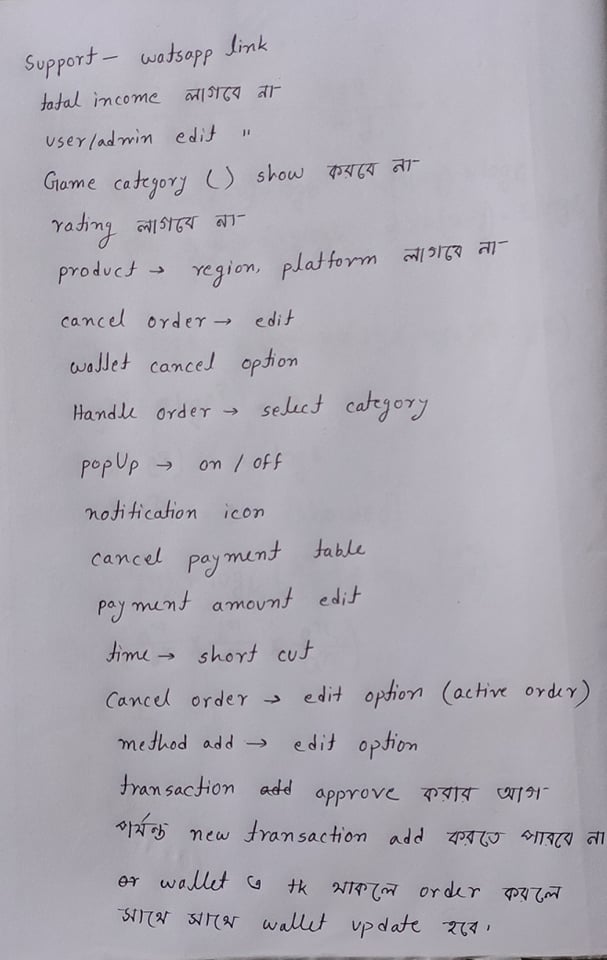 Support - watsapp link
total income লাগবে না
user/admin edit "
Game category () show করবে না
rating লাগবে না
product → region, platform লাগবে না
cancel order → edit
wallet cancel option
Handle order → select category
popUp → on / off
notification icon
cancel payment table
payment amount edit
time → short cut
Cancel order → edit option (active order)
method add → edit option
transaction add approve করার আগ
পর্যন্ত new transaction add করতে পারবে না
or wallet এ tk থাকলে order করলে
সাথে সাথে wallet update হবে।